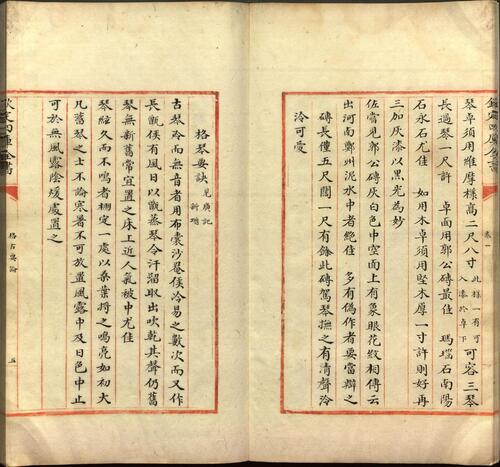 欽定四庫全書
卷一
琴卓須用維摩樣高二尺八寸 此様一有可入漆於卓下 可容三琴
長過琴一尺許 卓面用郭公磚最佳 瑪瑙石南陽
石永石尤佳 如用木卓須用堅木厚一寸許則好再
三加灰漆以黑光為妙
佐嘗見郭公磚灰白色中空面上有象眼花紋相傳云
出河南鄭州泥水中者絶佳 多有偽作者要當辯之
磚長僅五尺闊一尺有餘此磚駕琴撫之有清聲泠
泠可愛
格琴要訣 見廣記 新增
古琴冷而無音者用布囊沙罨候冷易之數次而又作
長甑候有風日以甑蒸琴令汗溜取出吹乾其聲仍舊
琴無新舊常宜置之床上近人氣被中尤佳
琴經久而不鳴者棚定一處以桑葉捋之鳴亮如初大
凡蓄琴之士不論寒暑不可放置風露中及日色中止
可於無風露陰煖處置之
欽定四庫全書
格古要論
五